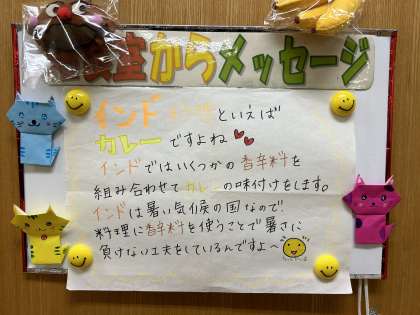 室からメッセージ
インド といえば
カレーですよね
インドではいくつかの香辛料を
組み合わせてカレーの味付けをします。
インドは暑い気候の国なので、
料理に香辛料を使うことで暑さに
負けない工夫をしているんですよ～